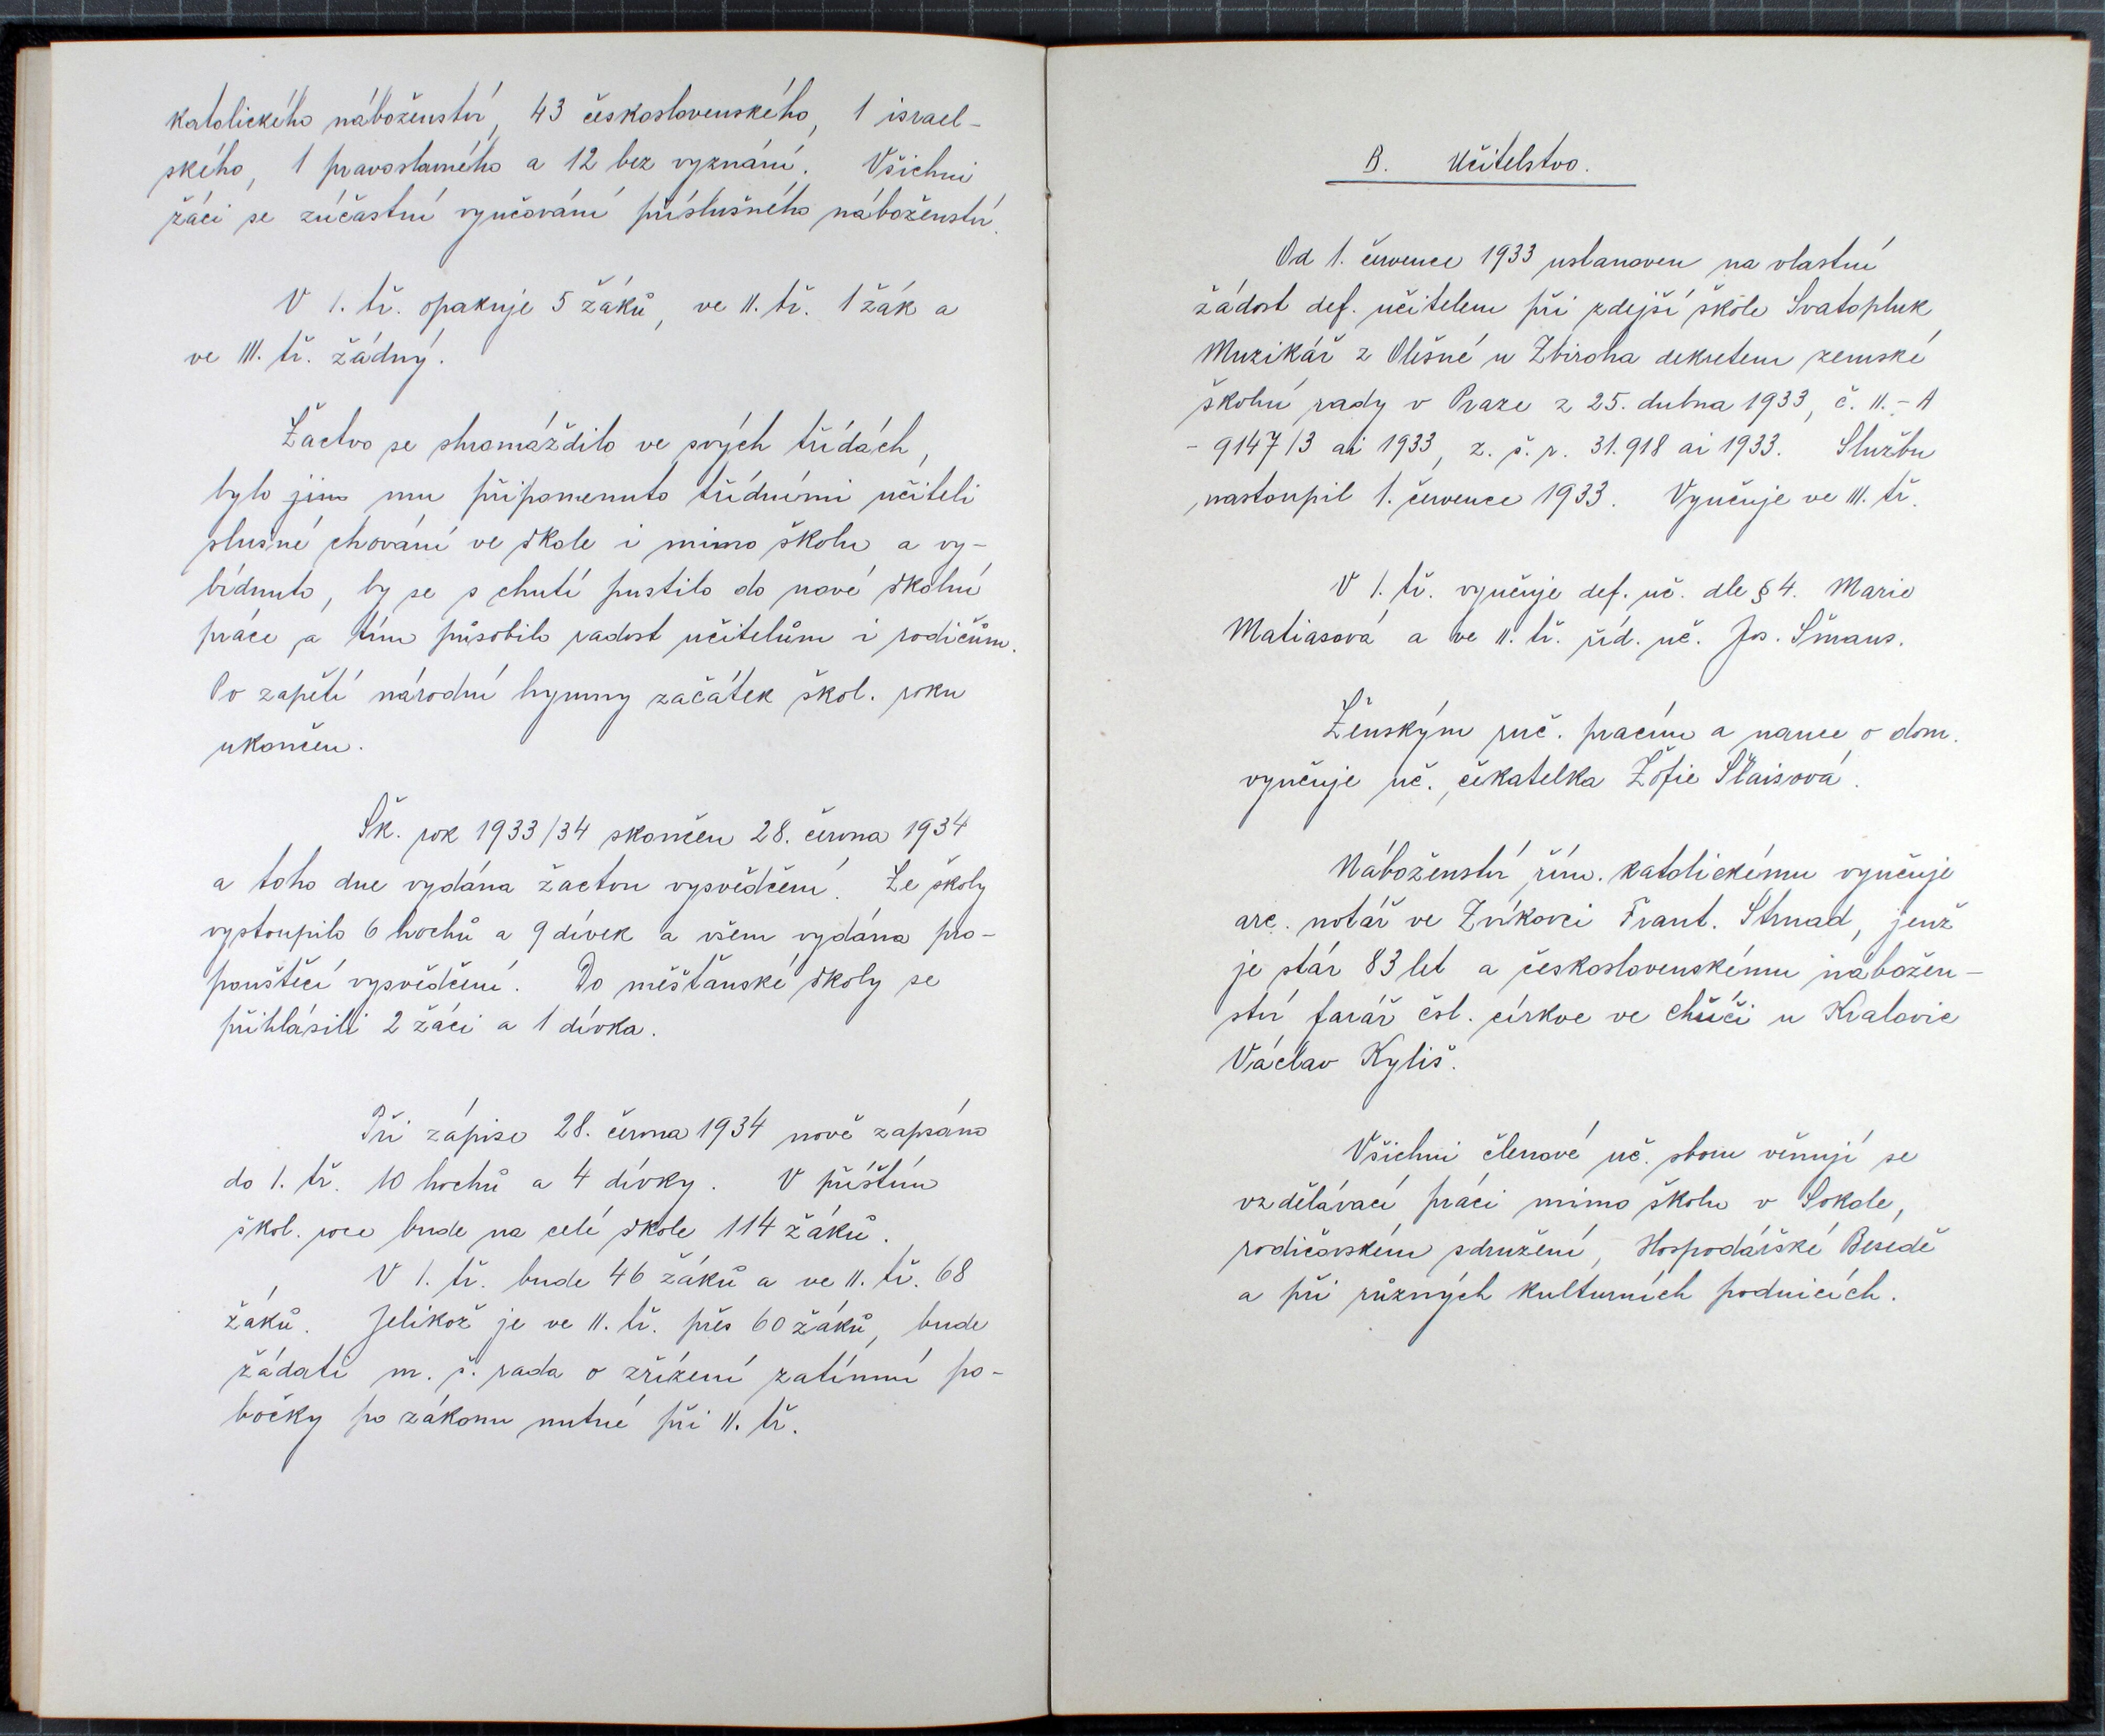 katolického náboženství, 43 československého, 1 israel-
ského, 1 pravoslavného a 12 bez vyznání. Všichni
žáci se zúčastní vyučování příslušného náboženství.
V I. tř. opakuje 5 žáků, ve II. tř. 1 žák a
ve III. tř. žádný.
Žactvo se shromáždilo ve svých třídách,
bylo jim mu připomenuto třídními učiteli
slušné chování ve škole i mimo školu a vy-
bídnuto, by se s chutí pustilo do nové školní
práce a tím působilo radost učitelům i rodičům.
Po zapětí národní hymny začátek škol. roku
ukončen.
Šk. rok 1933/34 skončen 28. června 1934
a toho dne vydána žactvu vysvědčení. Ze školy
vystoupilo 6 hochů a 9 dívek a všem vydána pro-
pouštěcí vysvědčení. Do měšťanské školy se
přihlásili 2 žáci a 1 dívka.
Při zápise 28. června 1934 nově zapsáno
do I. tř. 10 hochů a 4 dívky. V příštím
škol. roce bude na celé škole 114 žáků.
V I. tř. bude 46 žáků a ve II. tř. 68
žáků. Jelikož je ve II. tř. přes 60 žáků, bude
žádati m. š. rada o zřízení zatímní po-
bočky po zákonu nutné při II. tř.
B. Učitelstvo.
Od 1. července 1933 ustanoven na vlastní
žádost def. učitelem při zdejší škole Svatopluk
Muzikář z Olešné u Zbiroha dekretem zemské
školní rady v Praze z 25. dubna 1933, č. II. - A
- 9147/3 ai 1933, z. š. r. 31.918 ai 1933. Službu
nastoupil 1. července 1933. Vyučuje ve III. tř.
V I. tř. vyučuje def. uč. dle § 4. Marie
Matiasová a ve II. tř. říd. uč. Jos. Šmaus.
Ženským ruč. pracím a nauce o dom.
vyučuje uč. čekatelka Žofie Šlaisová.
Náboženství řím. katolickému vyučuje
arc. notář ve Zvíkovci Frant. Strnad, jenž
je stár 83 let a československému nábožen-
ství farář čsl. církve ve Chříči u Kralovic
Václav Kyliš.
Všichni členové uč. sboru věnují se
vzdělávací práci mimo školu v Sokole,
rodičovském sdružení, Hospodářské Besedě
a při různých kulturních podnicích.